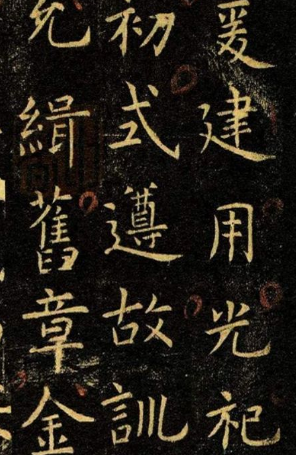 爰建用光祀
初式遵故訓
允緝舊章金